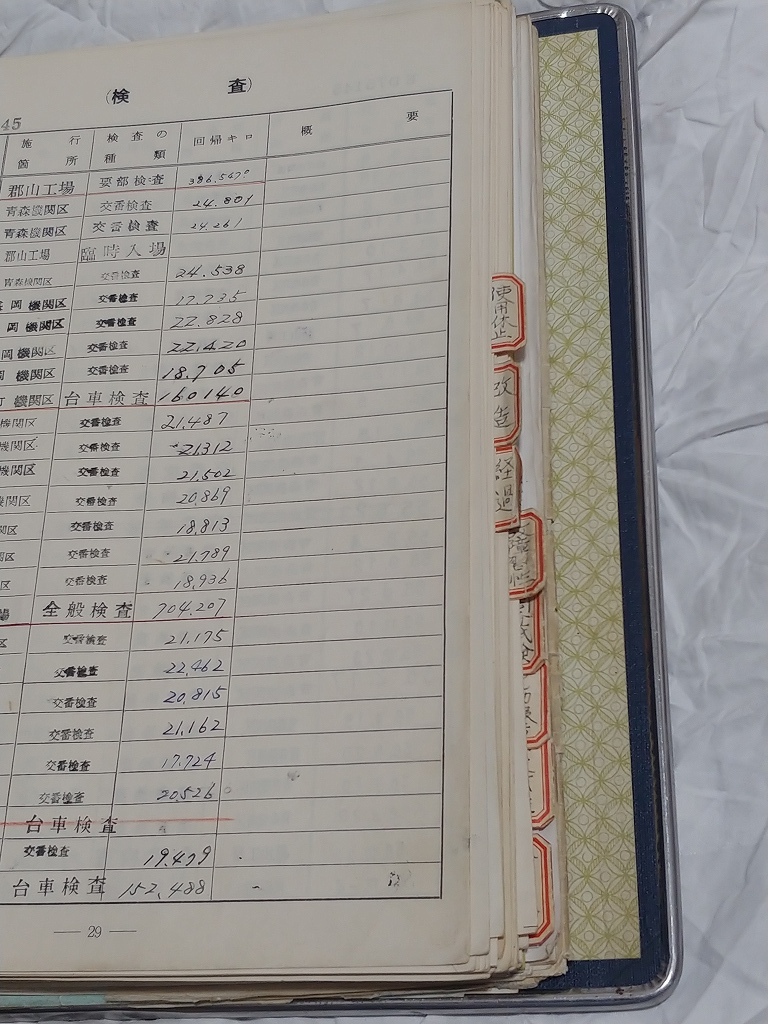 (検 査)
45
施行箇所 検査の種類 回帰キロ 概要
郡山工場 要部検査 386,547
青森機関区 交番検査 24.801
青森機関区 交番検査 24.261
郡山工場 臨時入場
青森機関区 交番検査 24.538
岡機関区 交番検査 17.735
岡機関区 交番検査 22.828
岡機関区 交番検査 22,420
機関区 交番検査 18.705
機関区 台車検査 160140
機関区 交番検査 21,487
機関区 交番検査 21312
機関区 交番検査 21,502
機関区 交番検査 20,869
関区 交番検査 18,813
区 交番検査 21,789
区 交番検査 18,936
場 全般検査 704,207
区 交番検査 21,175
交番検査 22,462
交番検査 20,815
交番検査 21,162
交番検査 17,724
交番検査 20,526
台車検査
交番検査 19,479
台車検査 152,488
— 29 —
使用休止
改造
経過